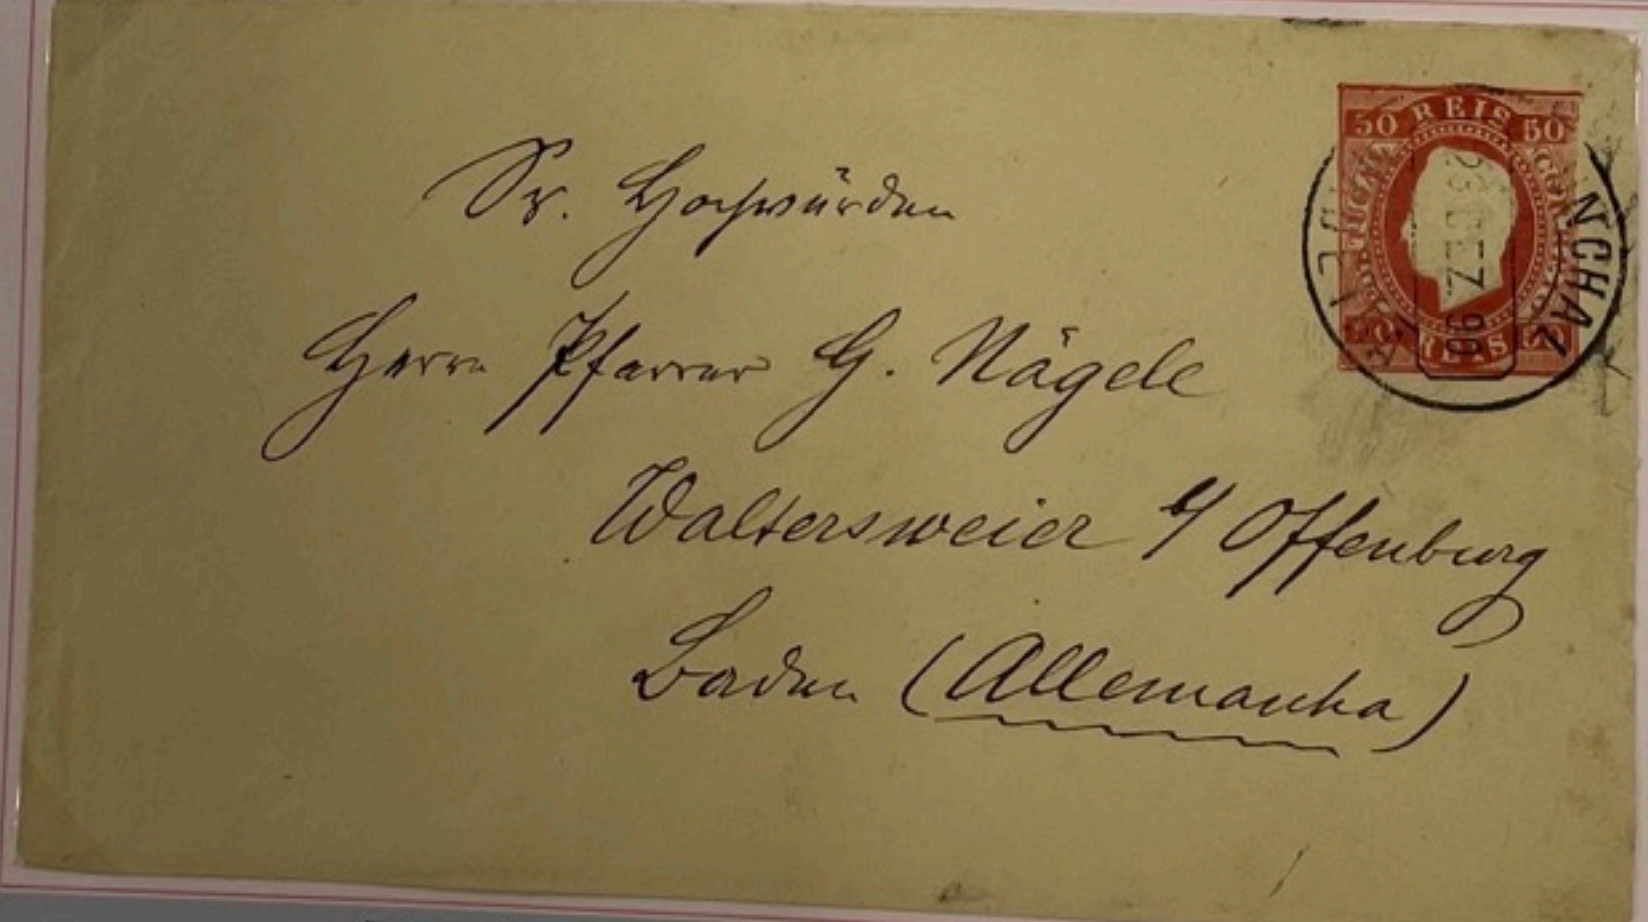 50 REIS 50
CONTINENTE
NCHAL
23 DEZ 90
50 REIS 50
Sr. Hochwürden
Herrn Pfarrer G. Nägele
Waltersweier b/ Offenburg
Baden (Allemanha)